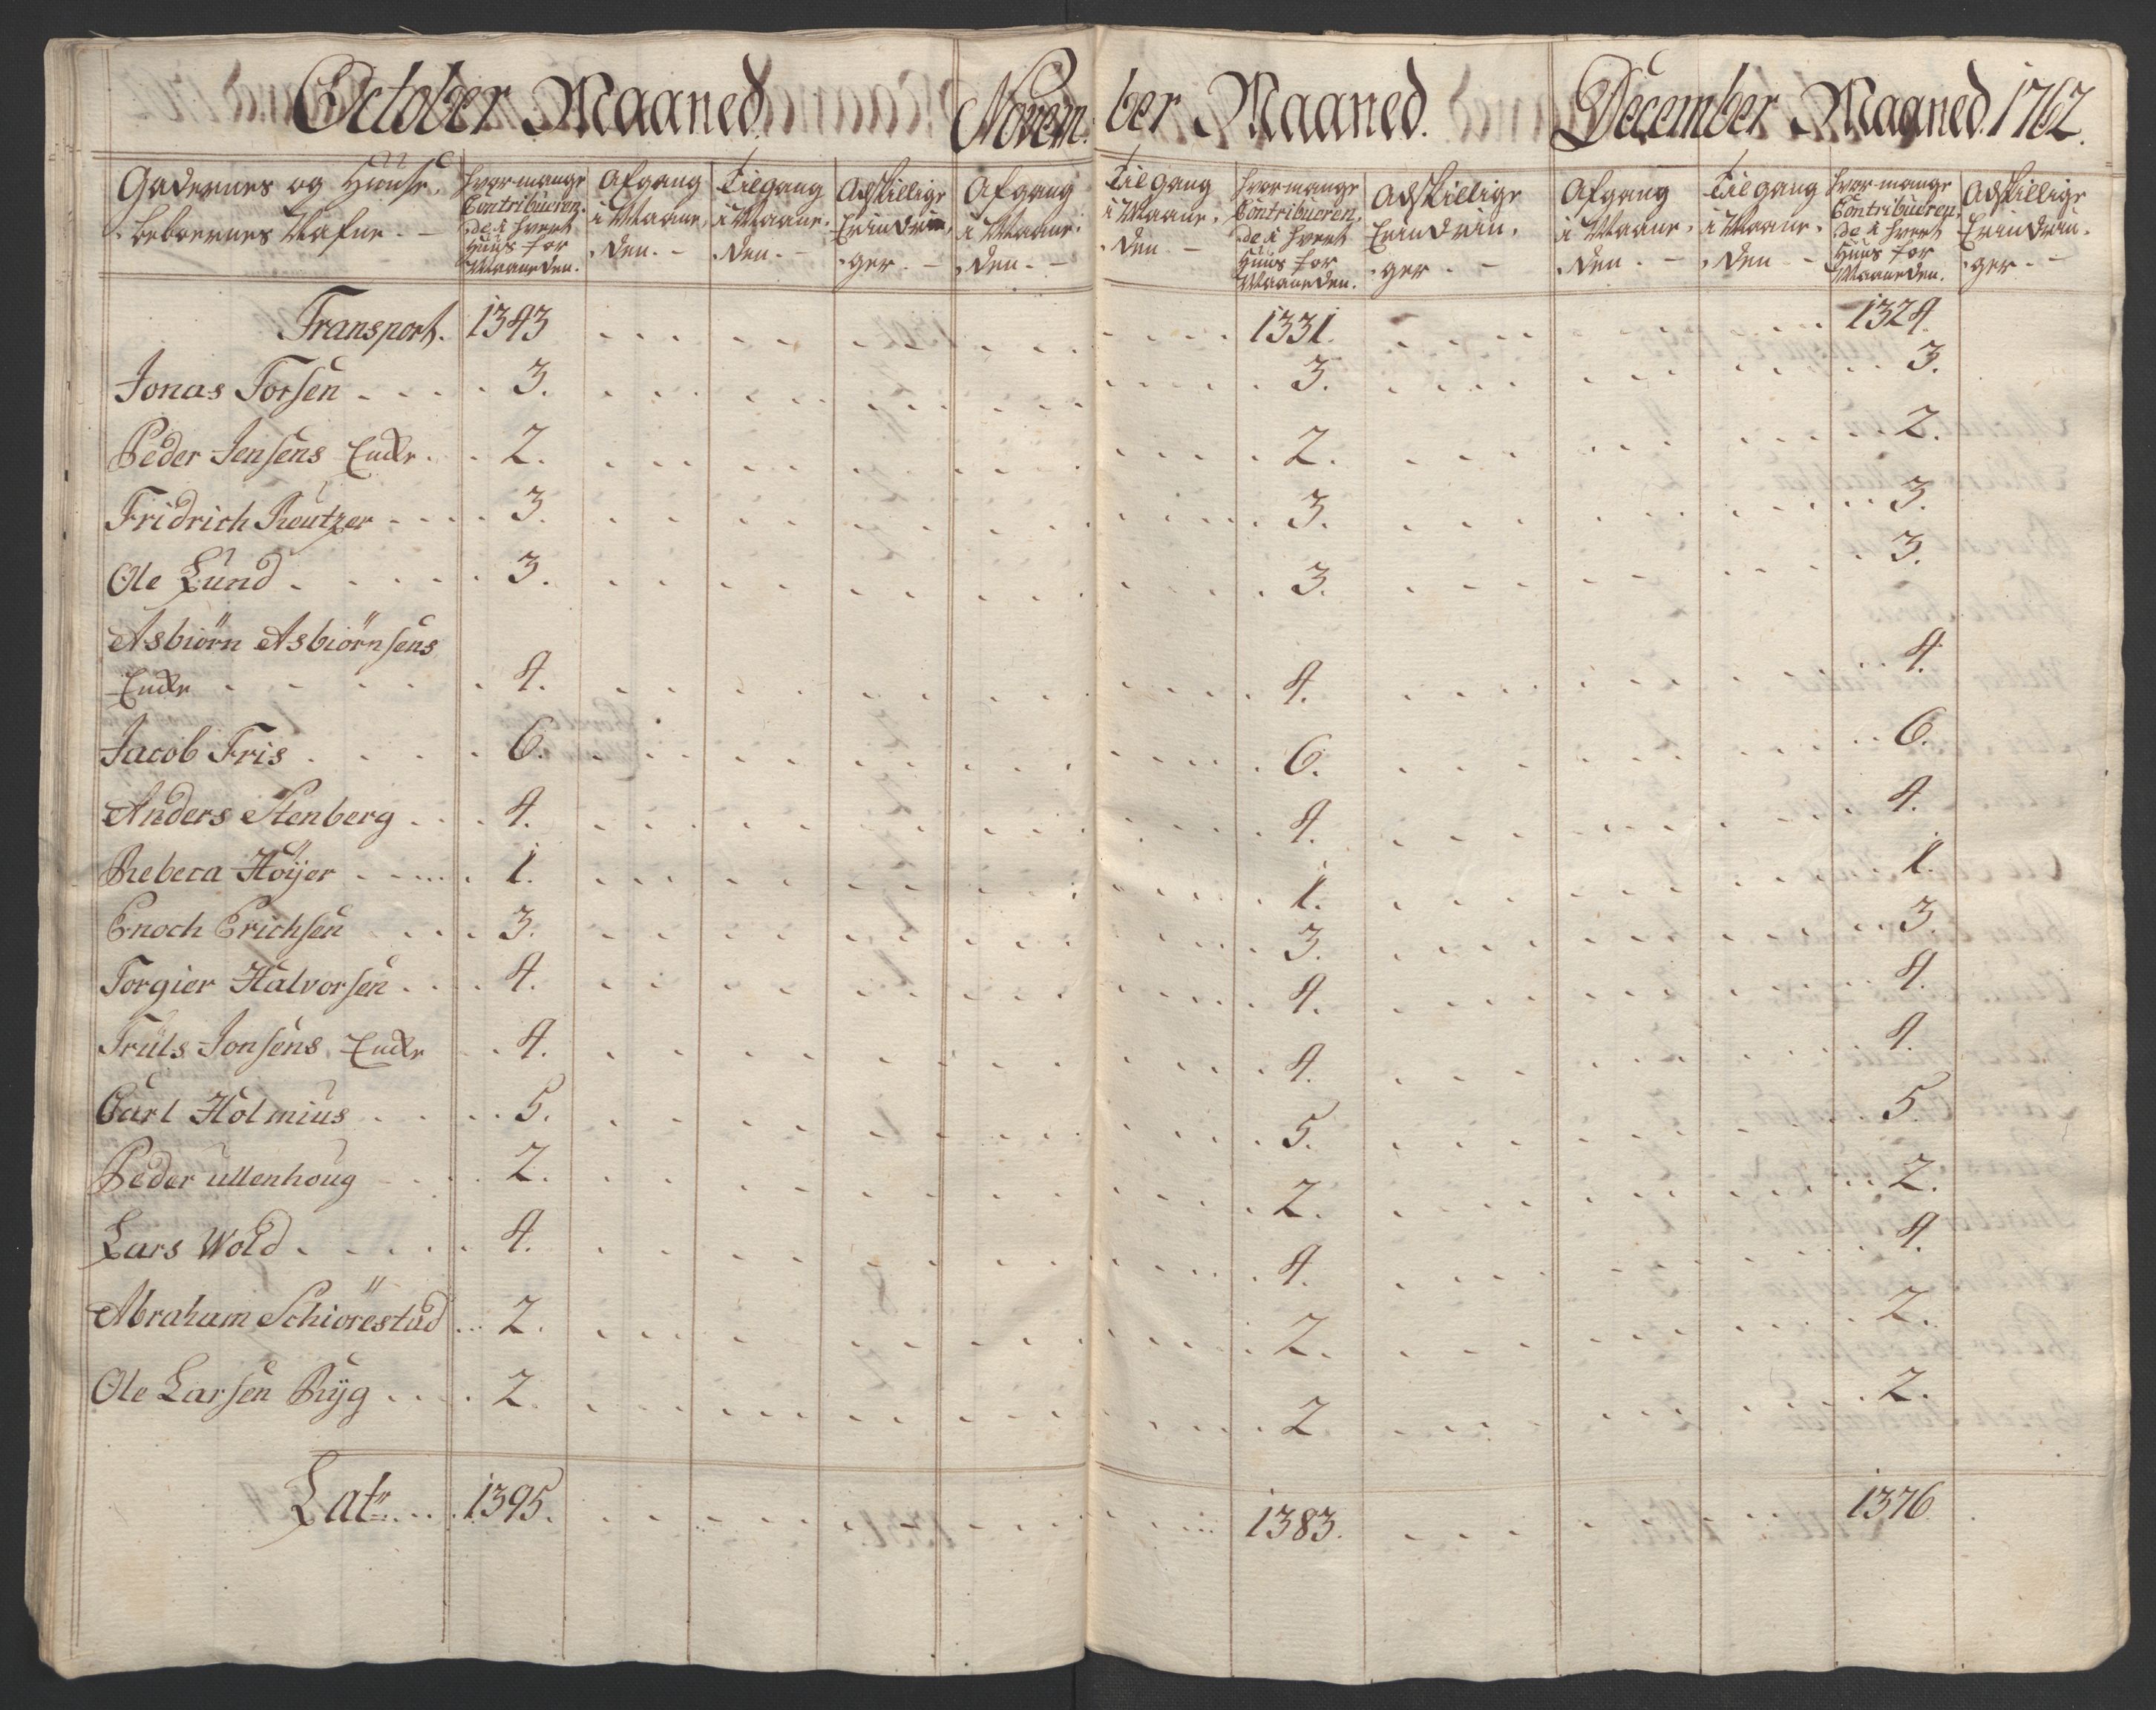 October Maaned. November Maaned. December Maaned. 1762.
Gadernes og Huuse, beboernes Nafne. | Hvor mange Contribueren, de i hvert Huus for Maaneden. | Afgang i Maane, den. | Tilgang i Maane, den. | Adskillige Erindrin, ger | Afgang i Maane, den. | Tilgang i Maane, den | Hvor mange Contribueren, de i hvert Huus for Maaneden. | Adskillige Erindrin, ger | Afgang i Maane, den. | Tilgang i Maane, den | Hvor mange Contribueren, de i hvert Huus for Maaneden. | Adskillige Erindrin, ger
Transport. 1343 1331. 1324.
Jonas Torsen 3. 3. 3.
Peder Jensens Encke 2. 2. 2.
Fridrich Reutzer 3. 3. 3.
Ole Lund 3. 3. 3.
Asbiörn Asbiörnsens
Encke 4. 4. 4.
Jacob Fris 6. 6. 6.
Anders Stenberg 4. 4. 4.
Rebeca Höyer 1. 1. 1.
Enoch Erichsen 3. 3. 3.
Torgier Halvorsen 4. 4. 4.
Truls Jonsens Encke 4. 4. 4.
Carl Holmius 5. 5. 5.
Peder ullenhoug 2. 2. 2.
Lars Wold 4. 4. 4.
Abraham Schiörestad 2. 2. 2.
Ole Larsen Ryg 2. 2 2.
Latr 1395. 1383. 1376